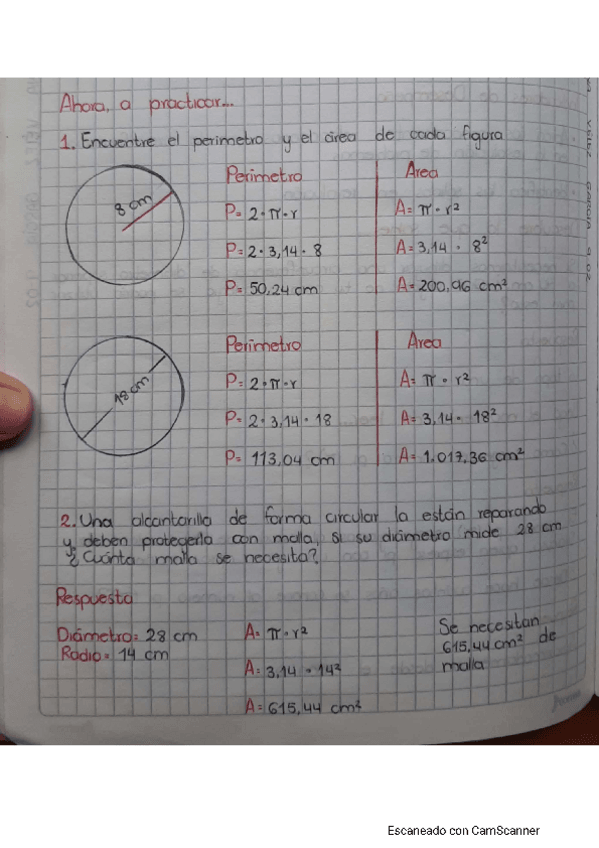 Ahora, a practicar...
1. Encuentre el perimetro y el área de cada figura
8 cm
Perimetro
P= 2·π·r
P= 2·3,14·8
P= 50,24 cm
Area
A= π·r²
A= 3,14 · 8²
A= 200,96 cm²
18 cm
Perimetro
P= 2·π·r
P= 2·3,14·18
P= 113,04 cm
Area
A= π·r²
A= 3,14· 18²
A= 1.017,36 cm²
2. Una alcantarilla de forma circular la están reparando
y deben protegerla con malla, si su diámetro mide 28 cm
¿Cuánta malla se necesita?
Respuesta
Diámetro= 28 cm
Radio= 14 cm
A= π·r²
A= 3,14·14²
A= 615,44 cm²
Se necesitan
615,44 cm² de
malla
Escaneado con CamScanner